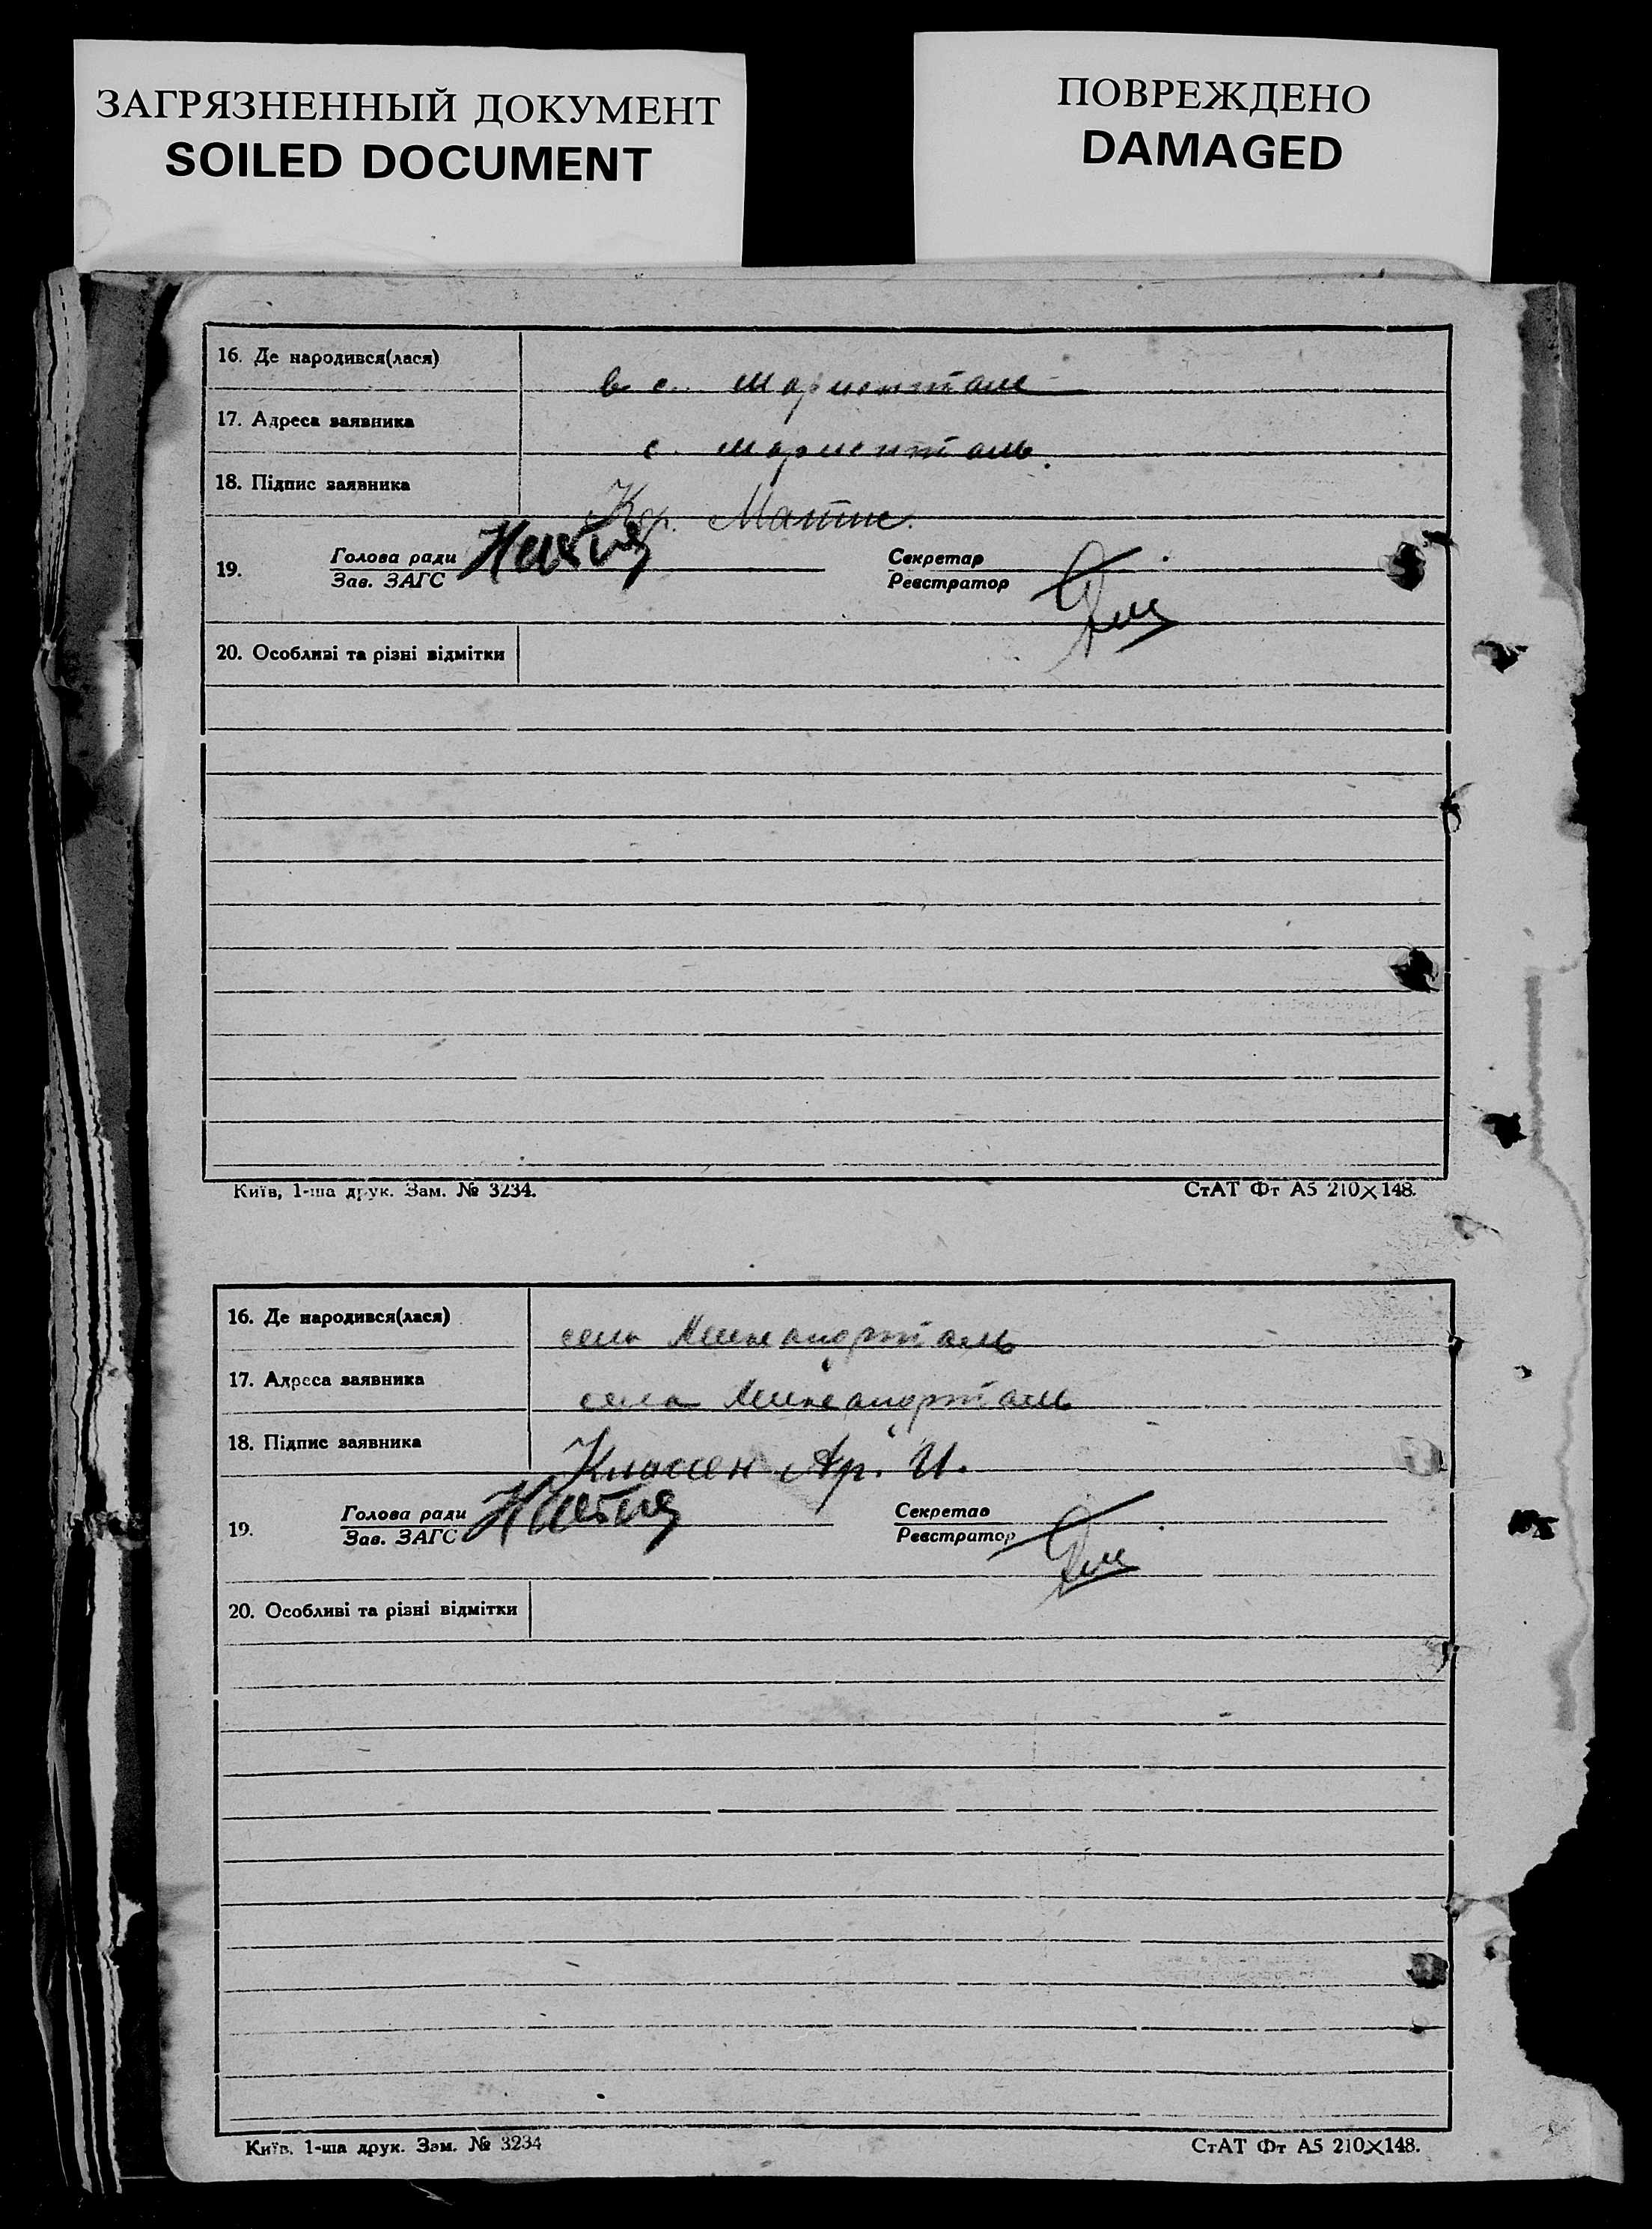 ЗАГРЯЗНЕННЫЙ ДОКУМЕНТ
SOILED DOCUMENT
ПОВРЕЖДЕНО
DAMAGED
16. Де народився(лася) в с. Мариентале
17. Адреса заявника с. Мариенталь
18. Підпис заявника
19. Голова ради Секретар
Зав. ЗАГС Реєстратор
20. Особливі та різні відмітки
Київ, 1-ша друк. Зам. № 3234. СтАТ Фт А5 210×148.
16. Де народився(лася) село
17. Адреса заявника село
18. Підпис заявника Классен Ар. И.
19. Голова ради Секретар
Зав. ЗАГС Реєстратор
20. Особливі та різні відмітки
Київ, 1-ша друк. Зам. № 3234 СтАТ Фт А5 210×148.